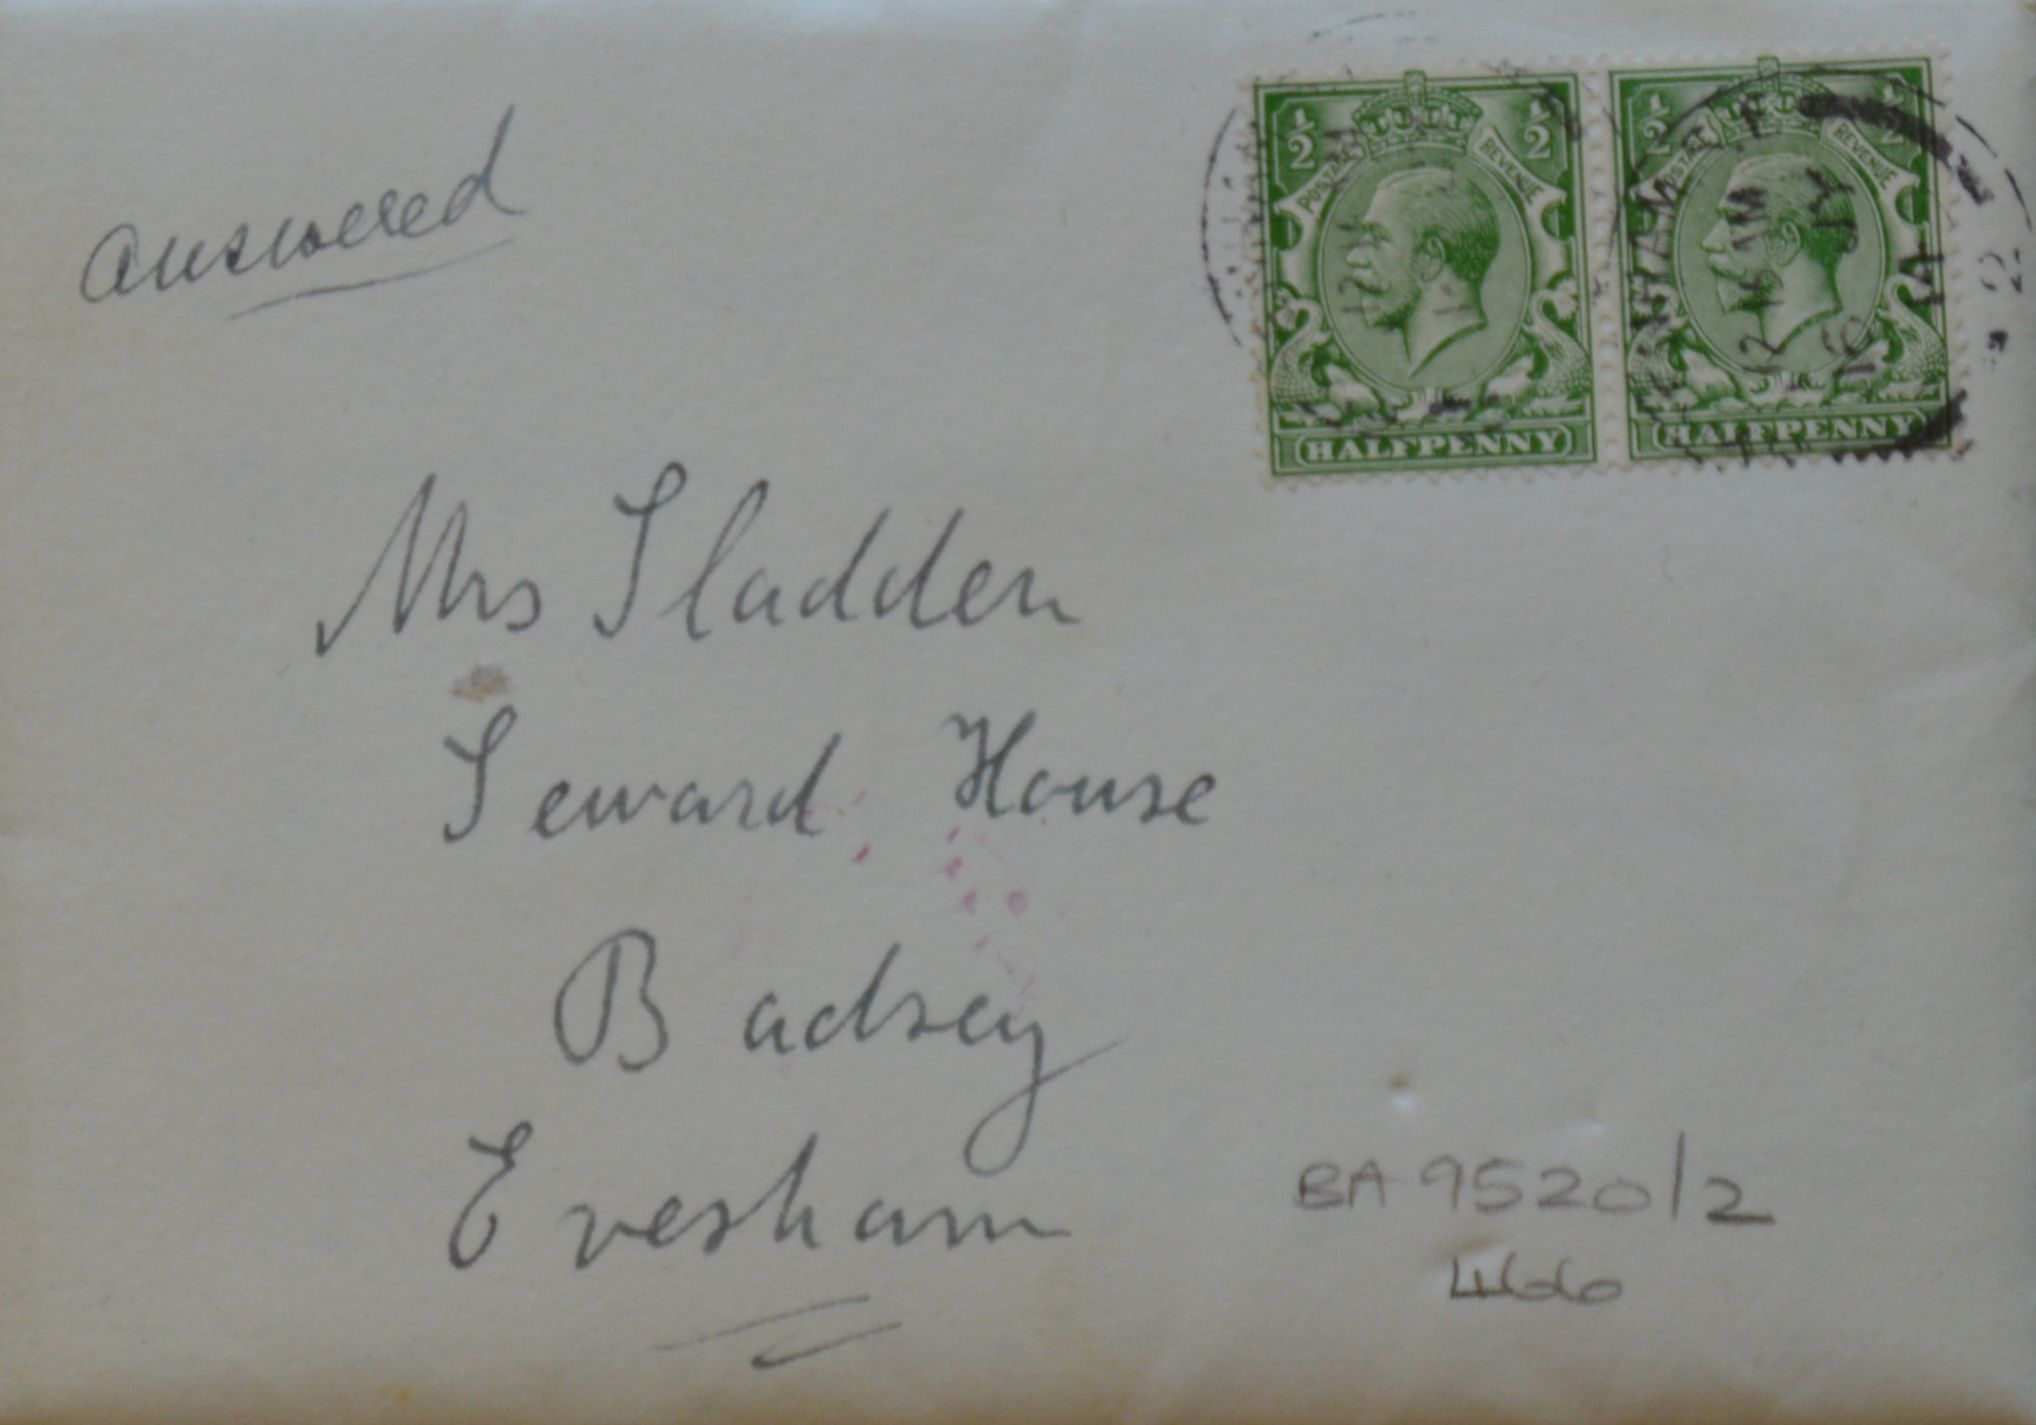 answered
½ ½
POSTAGE REVENUE
HALFPENNY
½ ½
POSTAGE REVENUE
HALFPENNY
Mrs Sladden
Seward House
Badsey
Evesham
BA 9520/2
466